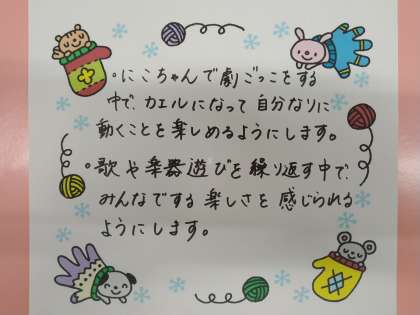 ・にこちゃんで劇ごっこをする
中で、カエルになって自分なりに
動くことを楽しめるようにします。
・歌や楽器遊びを繰り返す中で、
みんなでする楽しさを感じられる
ようにします。